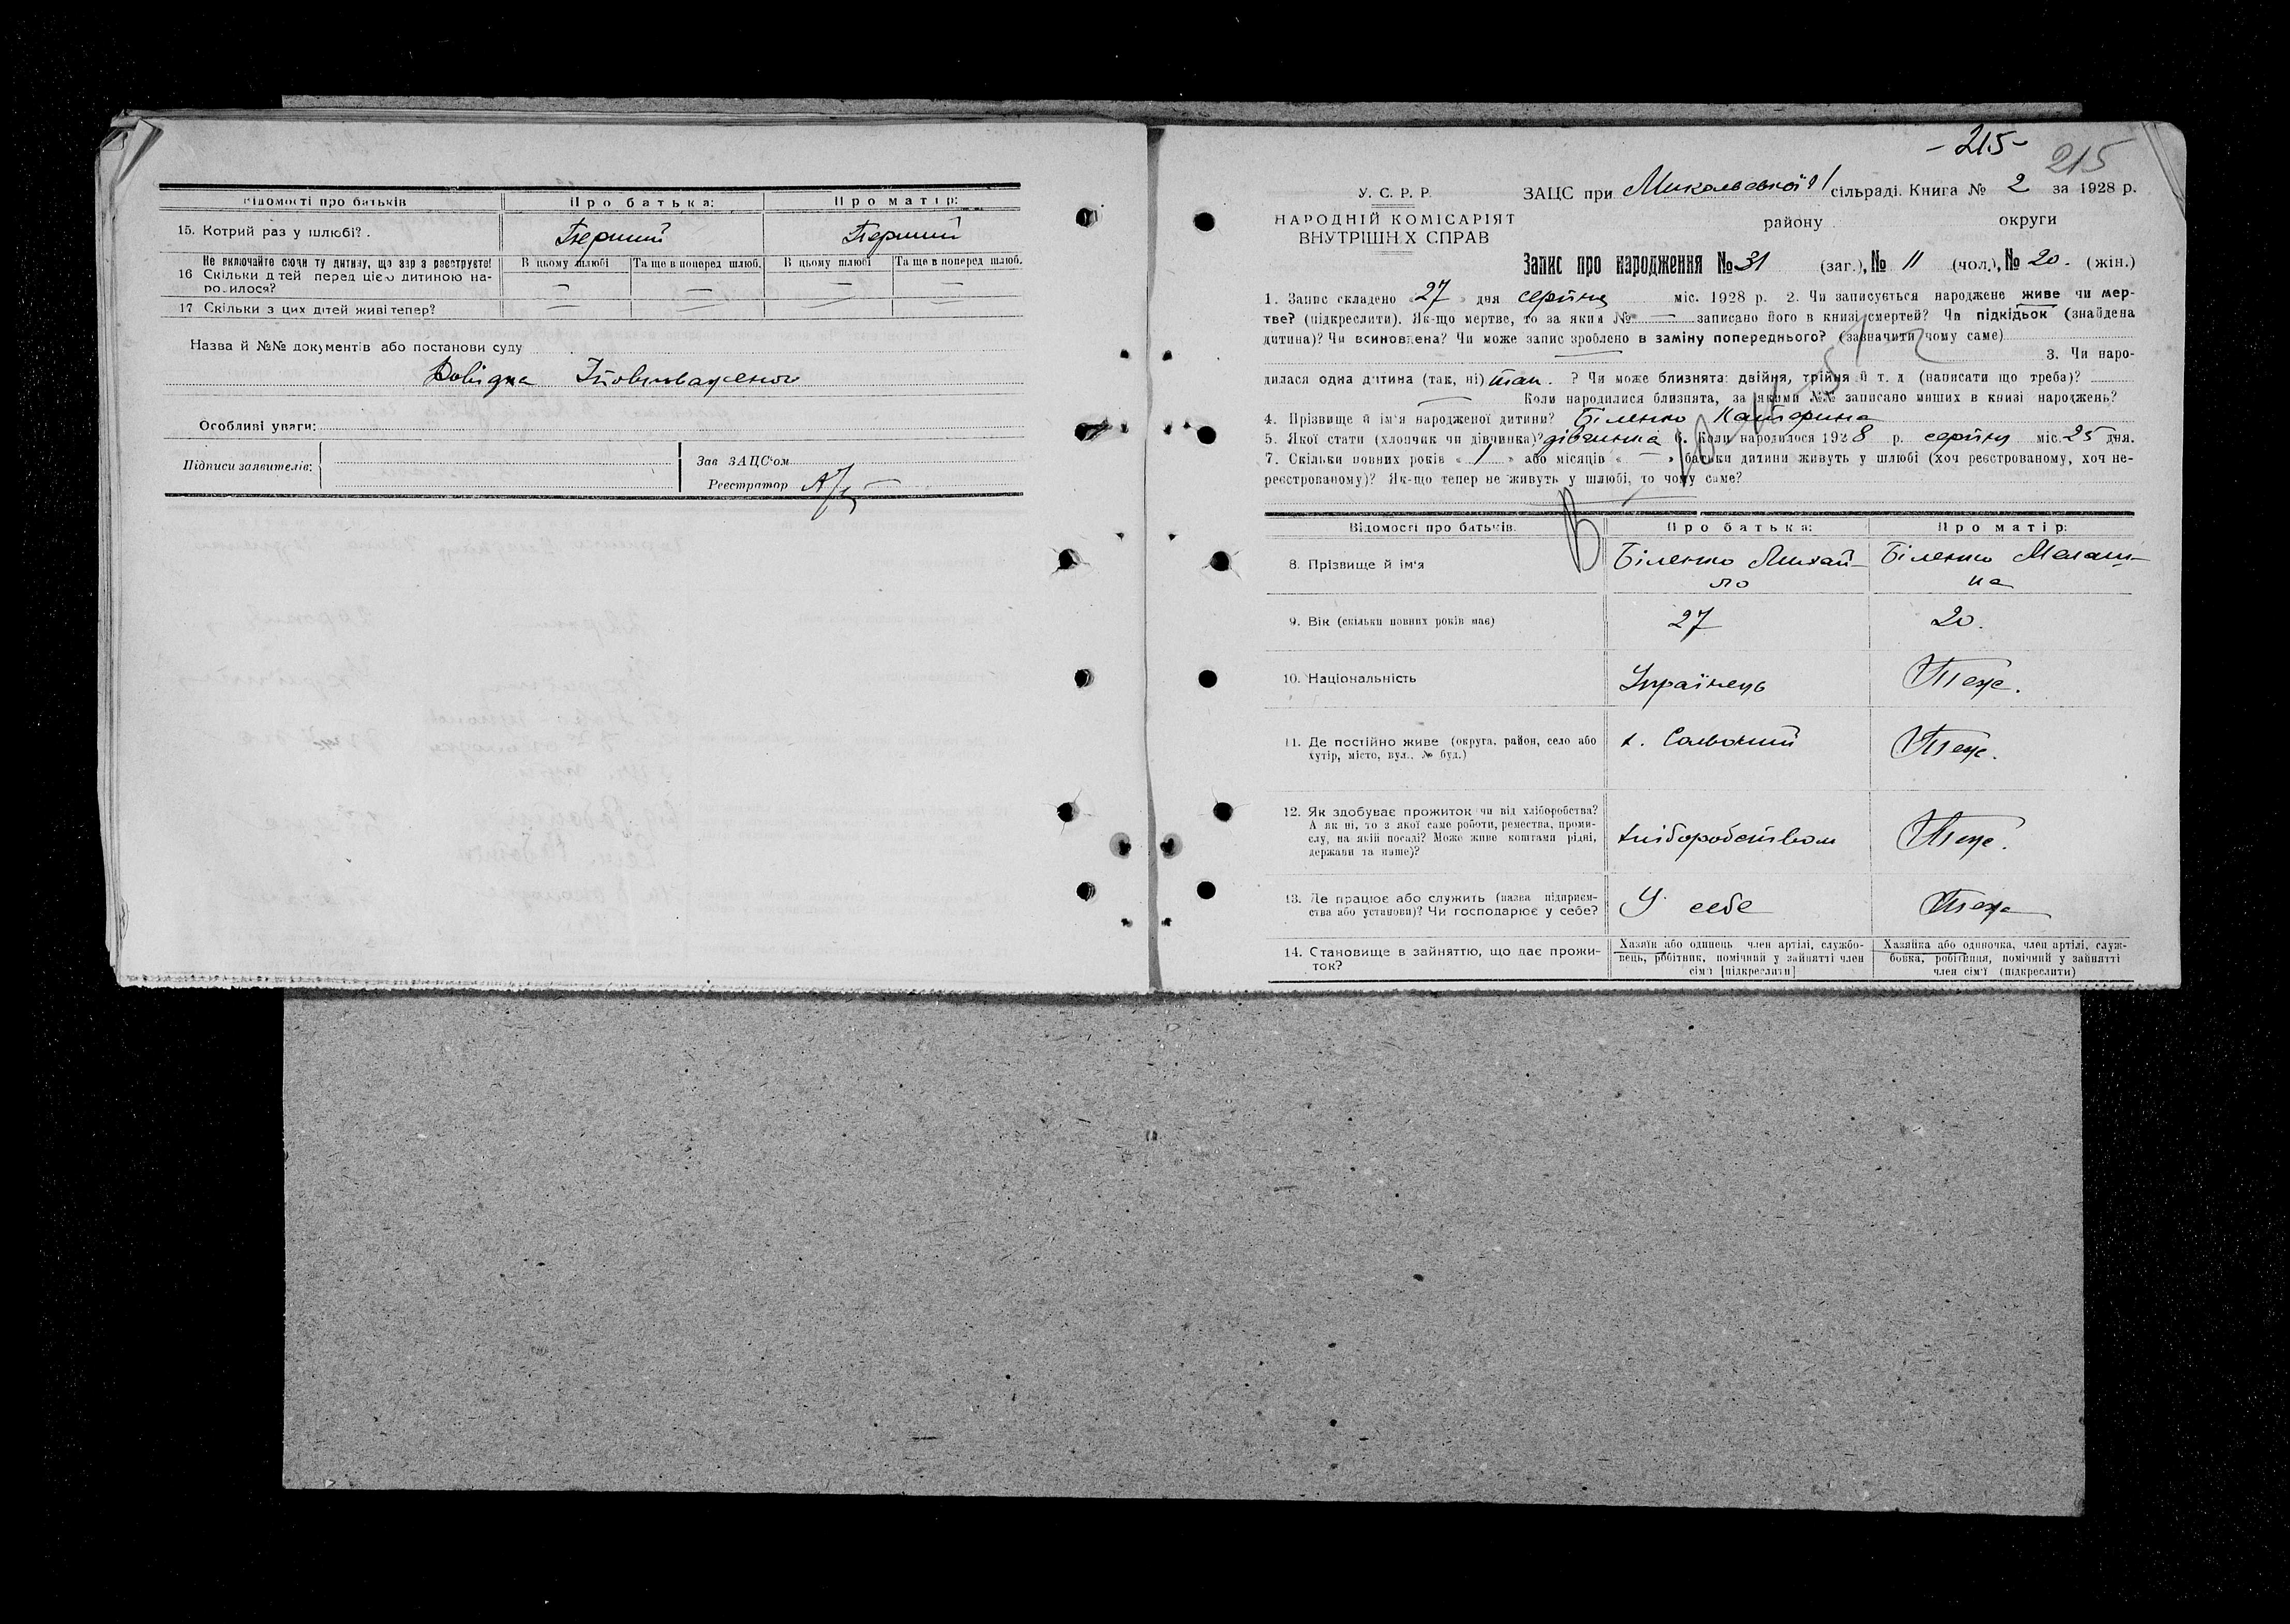 Відомості про батьків
Про батька:
Про матір:
15. Котрий раз у шлюбі?
Перший
Перший
Не включайте сюди ту дитину, що зараз реєструєте!
16 Скільки дітей перед цією дитиною на-
родилося?
В цьому шлюбі
Та ще в поперед шлюб.
В цьому шлюбі
Та ще в поперед шлюб.
— — — —
17 Скільки з цих дітей живі тепер?
Назва й №№ документів або постанови суду
Довідка
Особливі уваги:
Підписи заявителів:
Зав ЗАЦС'ом
Реєстратор
- 215 -
215
У. С. Р. Р.
НАРОДНІЙ КОМІСАРІЯТ
ВНУТРІШНІХ СПРАВ
ЗАЦС при Миколаєвської сільраді. Книга № 2 за 1928 р.
району округи
Запис про народження № 31 (заг.), № 11 (чол.), № 20. (жін.)
1. Запис складено «27» дня серпня міс. 1928 р. 2. Чи записується народжене живе чи мер-
тве? (підкреслити). Як-що мертве, то за яким № — записано його в книзі смертей? Чи підкідьок (знайдена
дитина)? Чи всиновлена? Чи може запис зроблено в заміну попереднього? (зазначити чому саме)
3. Чи наро-
дилася одна дитина (так, ні) так. ? Чи може близнята: двійня, трійня й т. д (написати що треба)?
Коли народилися близнята, за якими №№ записано инших в книзі народжень?
4. Прізвище й ім'я народженої дитини? Біленко Катерина
5. Якої стати (хлопчик чи дівчинка)? дівчинка 6. Коли народилося 1928 р. серпня міс. 25 дня.
7. Скільки повних років « 1 » або місяців « — » батьки дитини живуть у шлюбі (хоч реєстрованому, хоч не-
реєстрованому)? Як-що тепер не живуть у шлюбі, то чому саме?
Відомості про батьків.
Про батька:
Про матір:
8. Прізвище й ім'я
Біленко Михай-
ло
Біленко Мелаш-
ка
9. Вік (скільки повних років має)
27
20.
10. Національність
Українець
Теж.
11. Де постійно живе (округа, район, село або
хутір, місто, вул., № буд.)
х.
Теж.
12. Як здобуває прожиток чи від хліборобства?
А як ні, то з якої саме роботи, ремества, проми-
слу, на якій посаді? Може живе коштами рідні,
держави та инше)?
хліборобством
Теж.
13. Де працює або служить (назва підприєм-
ства або установи)? Чи господарює у себе?
У себе
Теж
14. Становище в зайняттю, що дає прожи-
ток?
Хазяїн або одинець член артілі, службо-
вець, робітник, помічний у зайнятті член
сім'ї [підкреслити]
Хазяйка або одиночка, член артілі, служ-
бовка, робітниця, помічний у зайнятті
член сім'ї (підкреслити)